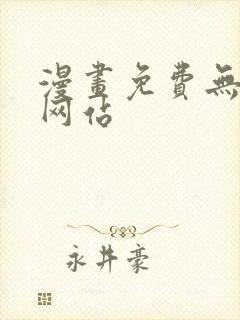 漫畫免費無
网佔
永井豪